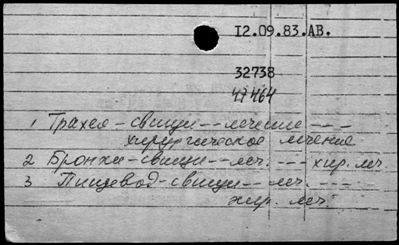 12.09.83.АВ.
32738
47464
1 Трахея – свищи -- лечение ---
хирургическое лечение
2 Бронхи – свищи -- леч. --- хир. леч.
3 Пищевод – свищи -- леч. ---
хир. леч.